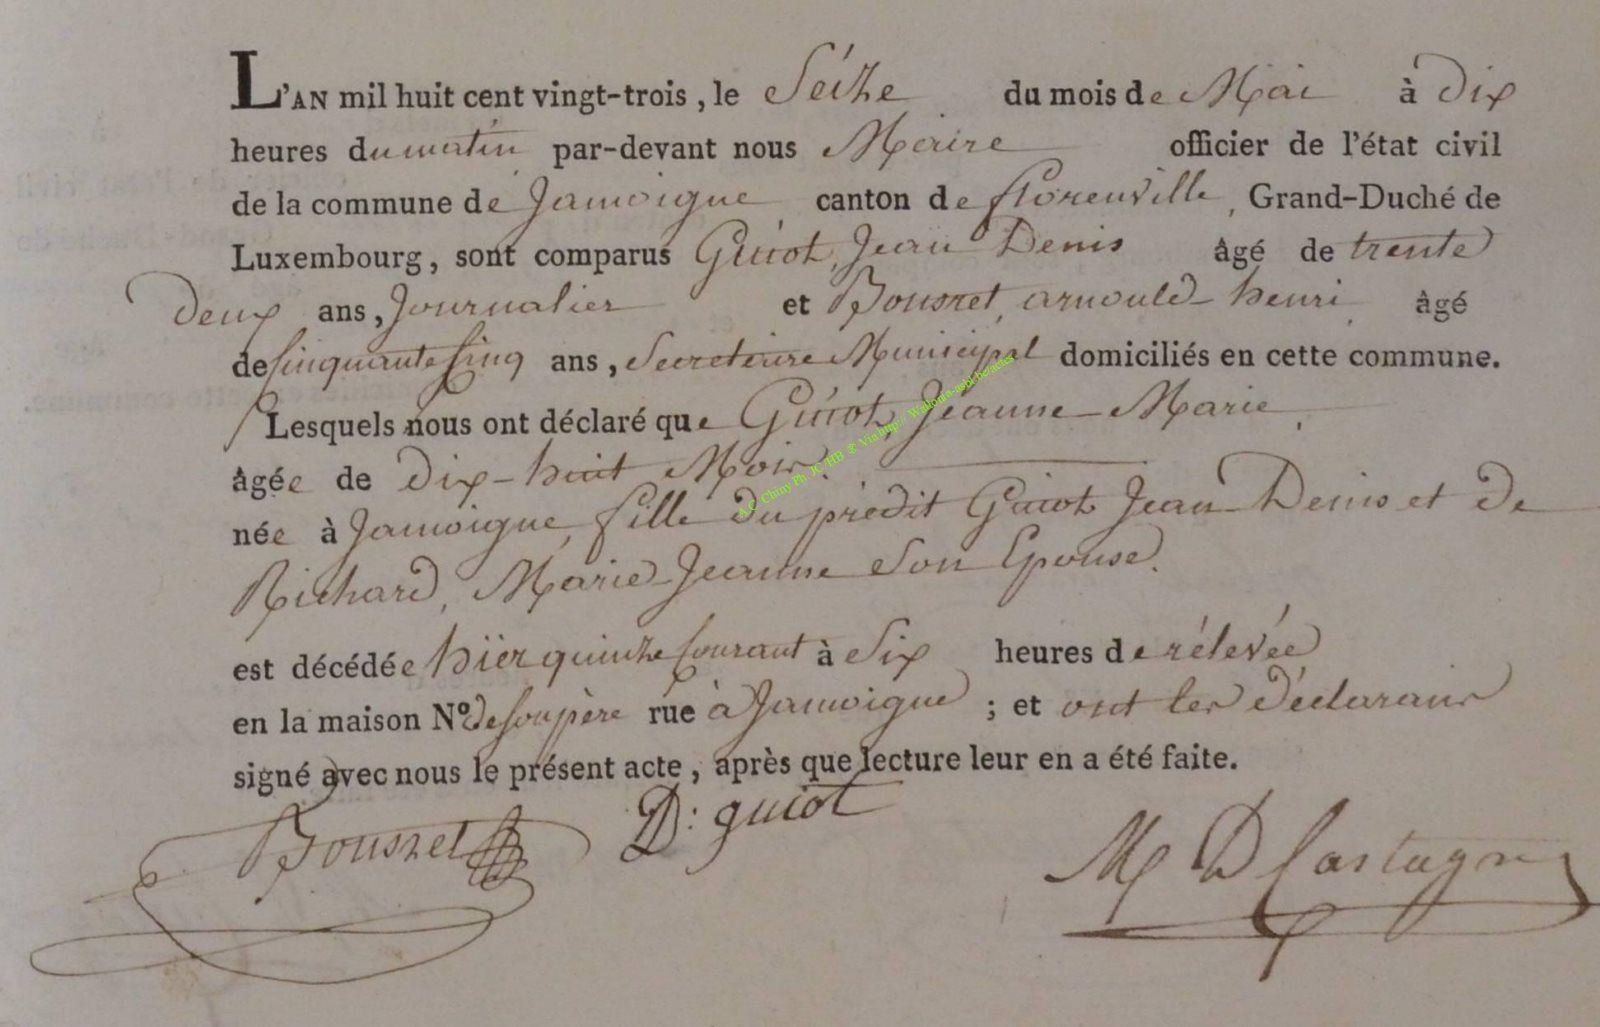 L'AN mil huit cent vingt-trois, le Séize du mois de Mai à dix
heures du matin par-devant nous Maire officier de l'état civil
de la commune de Jamoigne canton de florenville, Grand-Duché de
Luxembourg, sont comparus Guiot, Jean Denis âgé de trente
deux ans, Journalier et Bousret, arnould-henri, âgé
de Cinquante Cinq ans, Secretaire Municipal domiciliés en cette commune.
Lesquels nous ont déclaré que Guiot, Jeanne-Marie,
âgée de dix-huit Mois,
née à Jamoigne, fille du prédit Guiot Jean-Denis et de
Richard, Marie-Jeanne Son Epouse.
est décédée hïer quinze Courant à Six heures de rélevée
en la maison No. de Son père rue à Jamoigne ; et ont les déclarans
signé avec nous le présent acte, après que lecture leur en a été faite.
Bousret D: guiot M D Castagne
A.C. Chiny Ph. JC/HB & Via http:// Wallonia-asbl.be/actes